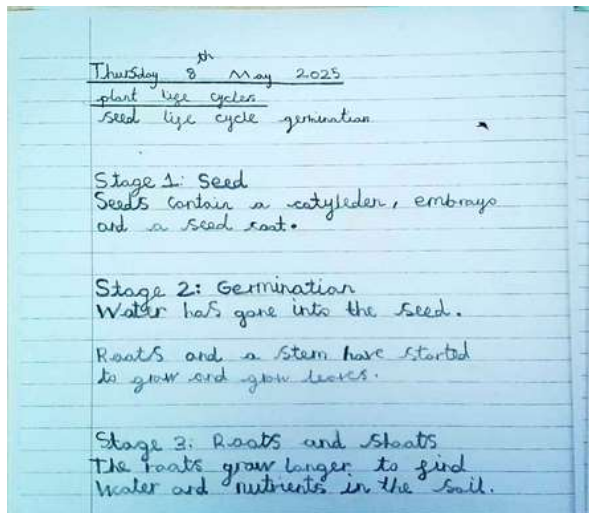 Thursday 8th May 2025
plant life cycles
seed life cycle germination
Stage 1: Seed
Seeds contain a cotyleden, embrayo
and a seed coat.
Stage 2: Germination
Water has gone into the seed.
Roots and a stem have started
to grow and grow leaves.
Stage 3: Roots and shoots
The roots grow longer to find
water and nutrients in the soil.